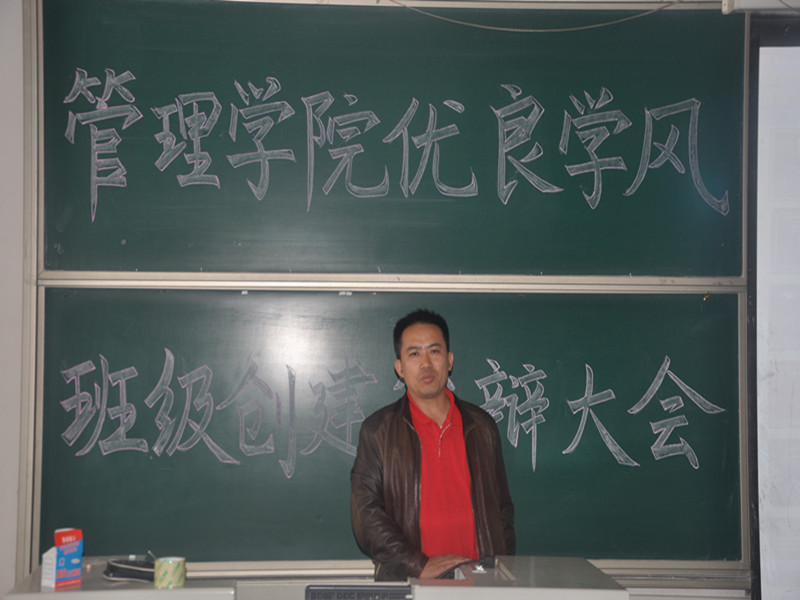 管理学院优良学风
班级创建 辩大会